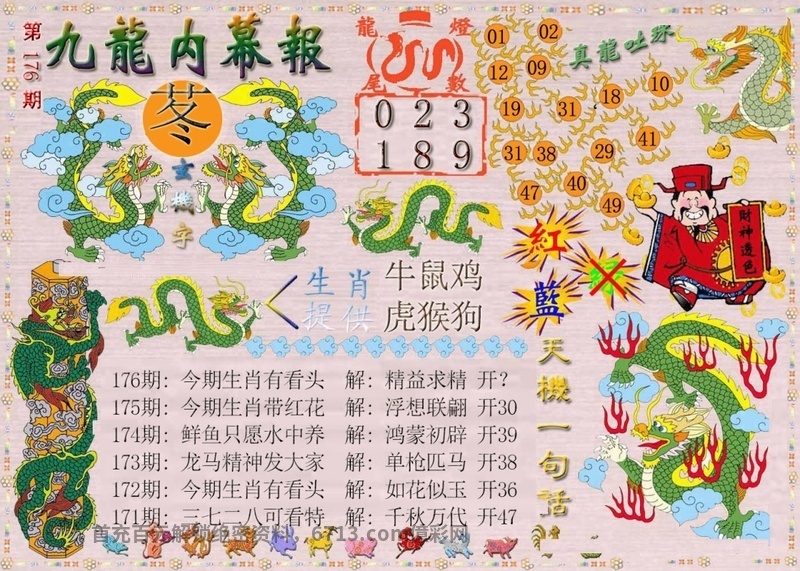 第176期
九龍内幕報
玄機字
龍燈
尾數
0 2 3
1 8 9
真龍吐珠
01 02
12 09
19 31 18 10
31 38 29 41
47 40 49
紅
藍
財神透色
生肖 牛鼠鸡
提供 虎猴狗
天機一句話
176期: 今期生肖有看头 解: 精益求精 开?
175期: 今期生肖带红花 解: 浮想联翩 开30
174期: 鲜鱼只愿水中养 解: 鸿蒙初辟 开39
173期: 龙马精神发大家 解: 单枪匹马 开38
172期: 今期生肖有看头 解: 如花似玉 开36
171期: 三七二八可看特 解: 千秋万代 开47